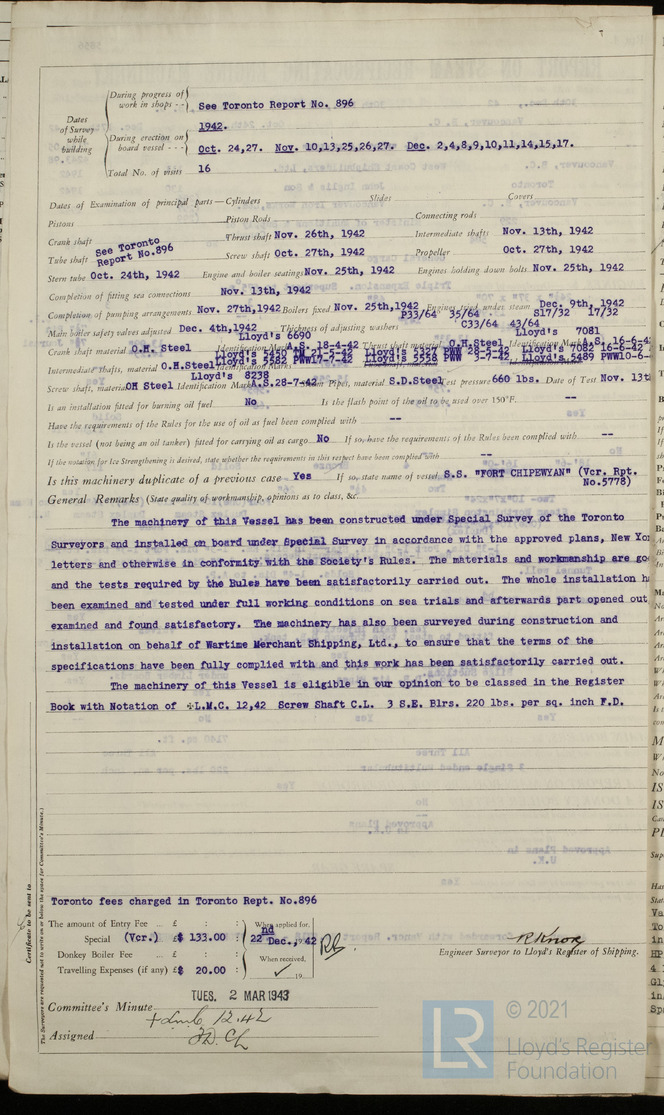 Dates of Survey while building
During progress of work in shops - - See Toronto Report No. 896
1942.
During erection on board vessel - - - Oct. 24,27. Nov. 10,13,25,26,27. Dec. 2,4,8,9,10,11,14,15,17.
Total No. of visits 16
Dates of Examination of principal parts—Cylinders Slides Covers
Pistons Piston Rods Connecting rods
Crank shaft See Toronto Report No.896 Thrust shaft Nov. 26th, 1942 Intermediate shafts Nov. 13th, 1942
Tube shaft Screw shaft Oct. 27th, 1942 Propeller Oct. 27th, 1942
Stern tube Oct. 24th, 1942 Engine and boiler seatings Nov. 25th, 1942 Engines holding down bolts Nov. 25th, 1942
Completion of fitting sea connections Nov. 13th, 1942
Completion of pumping arrangements Nov. 27th,1942 Boilers fixed Nov. 25th,1942 Engines tried under steam Dec. 9th, 1942
Main boiler safety valves adjusted Dec. 4th,1942 Thickness of adjusting washers P33/64 35/64 C33/64 43/64 S17/32 17/32
Crank shaft material O.H. Steel Identification Mark Lloyd's 6690 A.S. 18-4-42 Thrust shaft material O.H.Steel Identification Mark Lloyd's 7081 A.S. 16-6-4
Intermediate shafts, material O.H.Steel Identification Marks Lloyd's 5450 TM 21-5-42 Lloyd's 5582 PWW17-5-42 Lloyd's 5327 PWW 28 Lloyd's 5538 PWW 3-7-42 Lloyd's 7082 16-6-42 Lloyd's 5489 PWW10-6-
Screw shaft, material OH Steel Identification Mark Lloyd's 8238 A.S.28-7-42 Steam Pipes, material S.D.Steel Test pressure 660 lbs. Date of Test Nov. 13t
Is an installation fitted for burning oil fuel No Is the flash point of the oil to be used over 150°F. --
Have the requirements of the Rules for the use of oil as fuel been complied with --
Is the vessel (not being an oil tanker) fitted for carrying oil as cargo No If so, have the requirements of the Rules been complied with --
If the notation for Ice Strengthening is desired, state whether the requirements in this respect have been complied with --
Is this machinery duplicate of a previous case Yes If so, state name of vessel S.S. "FORT CHIPEWYAN" (Vcr. Rpt. No.5778)
General Remarks (State quality of workmanship, opinions as to class, &c.
The machinery of this Vessel has been constructed under Special Survey of the Toronto
Surveyors and installed on board under Special Survey in accordance with the approved plans, New Yor
letters and otherwise in conformity with the Society's Rules. The materials and workmanship are go
and the tests required by the Rules have been satisfactorily carried out. The whole installation h
been examined and tested under full working conditions on sea trials and afterwards part opened out
examined and found satisfactory. The machinery has also been surveyed during construction and
installation on behalf of Wartime Merchant Shipping, Ltd., to ensure that the terms of the
specifications have been fully complied with and this work has been satisfactorily carried out.
The machinery of this Vessel is eligible in our opinion to be classed in the Register
Book with Notation of +L.M.C. 12,42 Screw Shaft C.L. 3 S.E. Blrs. 220 lbs. per sq. inch F.D.
Certificate to be sent to
(The Surveyors are requested not to write on or below the space for Committee's Minute.)
Toronto fees charged in Toronto Rept. No.896
The amount of Entry Fee ... £ : : When applied for,
Special (Vcr.) £$ 133.00 : 22nd Dec., 1942
Donkey Boiler Fee ... £ : : When received,
Travelling Expenses (if any) £$ 20.00 : 19
R Knox
Engineer Surveyor to Lloyd's Register of Shipping.
TUES. 2 MAR 1943
Committee's Minute + Lmc 12.42
Assigned F.D. CL
© 2021
LR
Lloyd's Register
Foundation